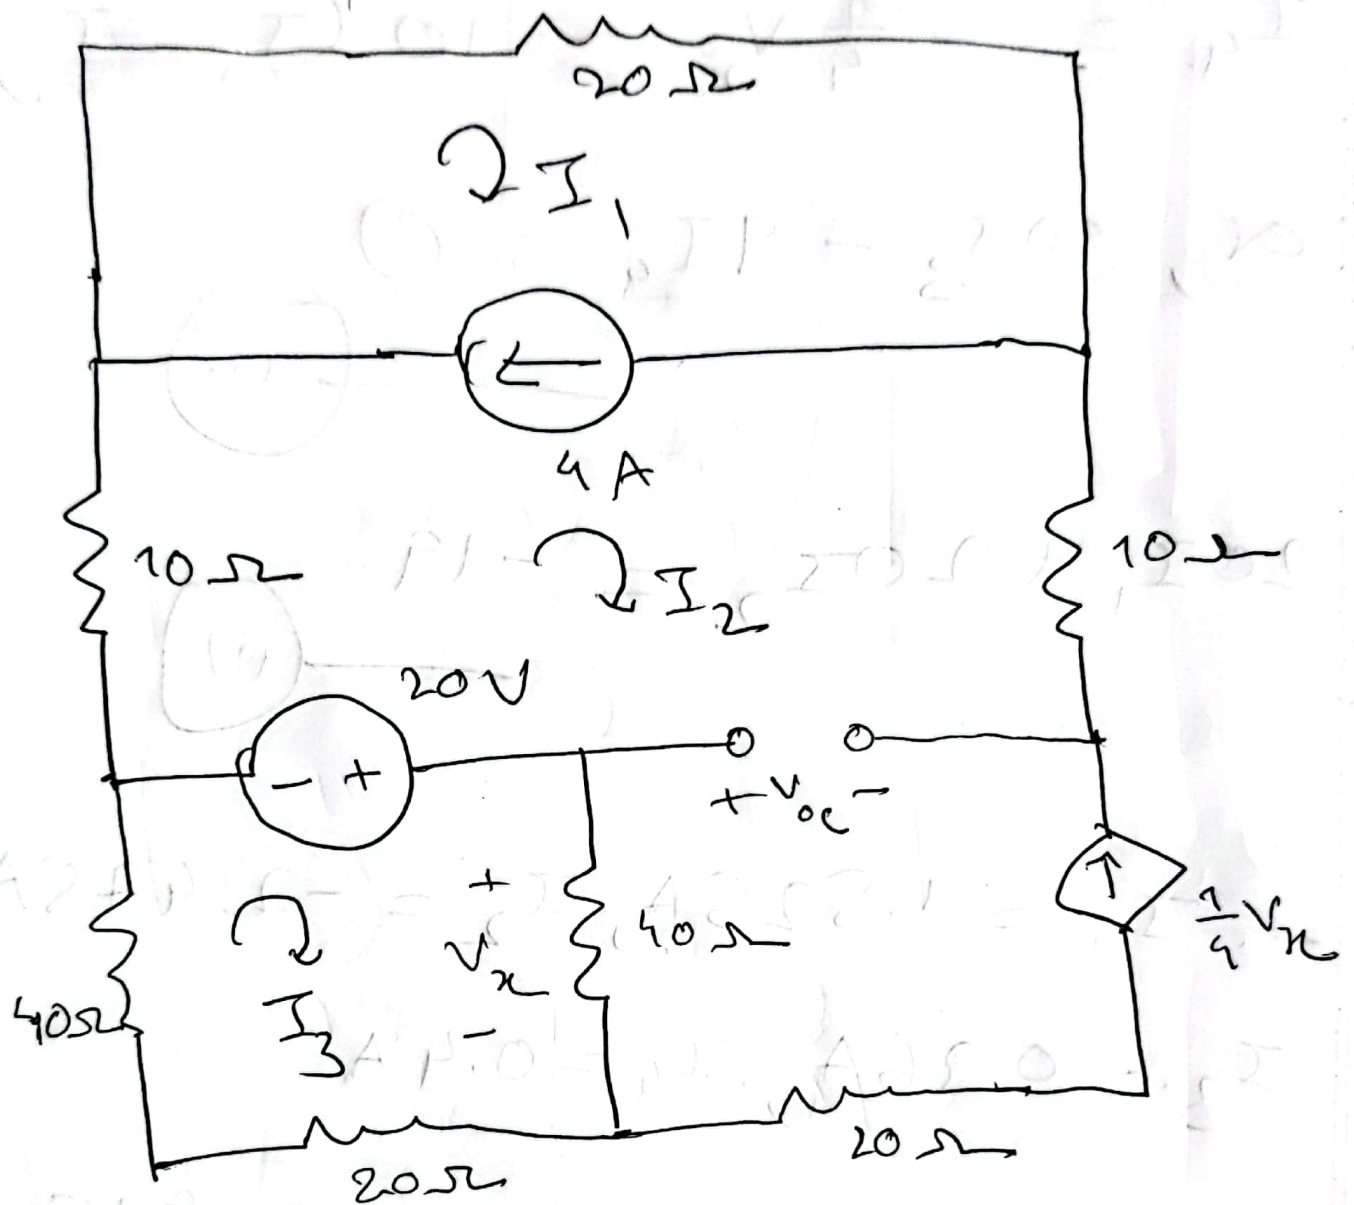 20 Ω
I₁
4 A
10 Ω
I₂
10 Ω
20 V
- +
+ Voc -
+
Vx
-
40 Ω
1/4 Vx
40Ω
I₃
20 Ω
20 Ω